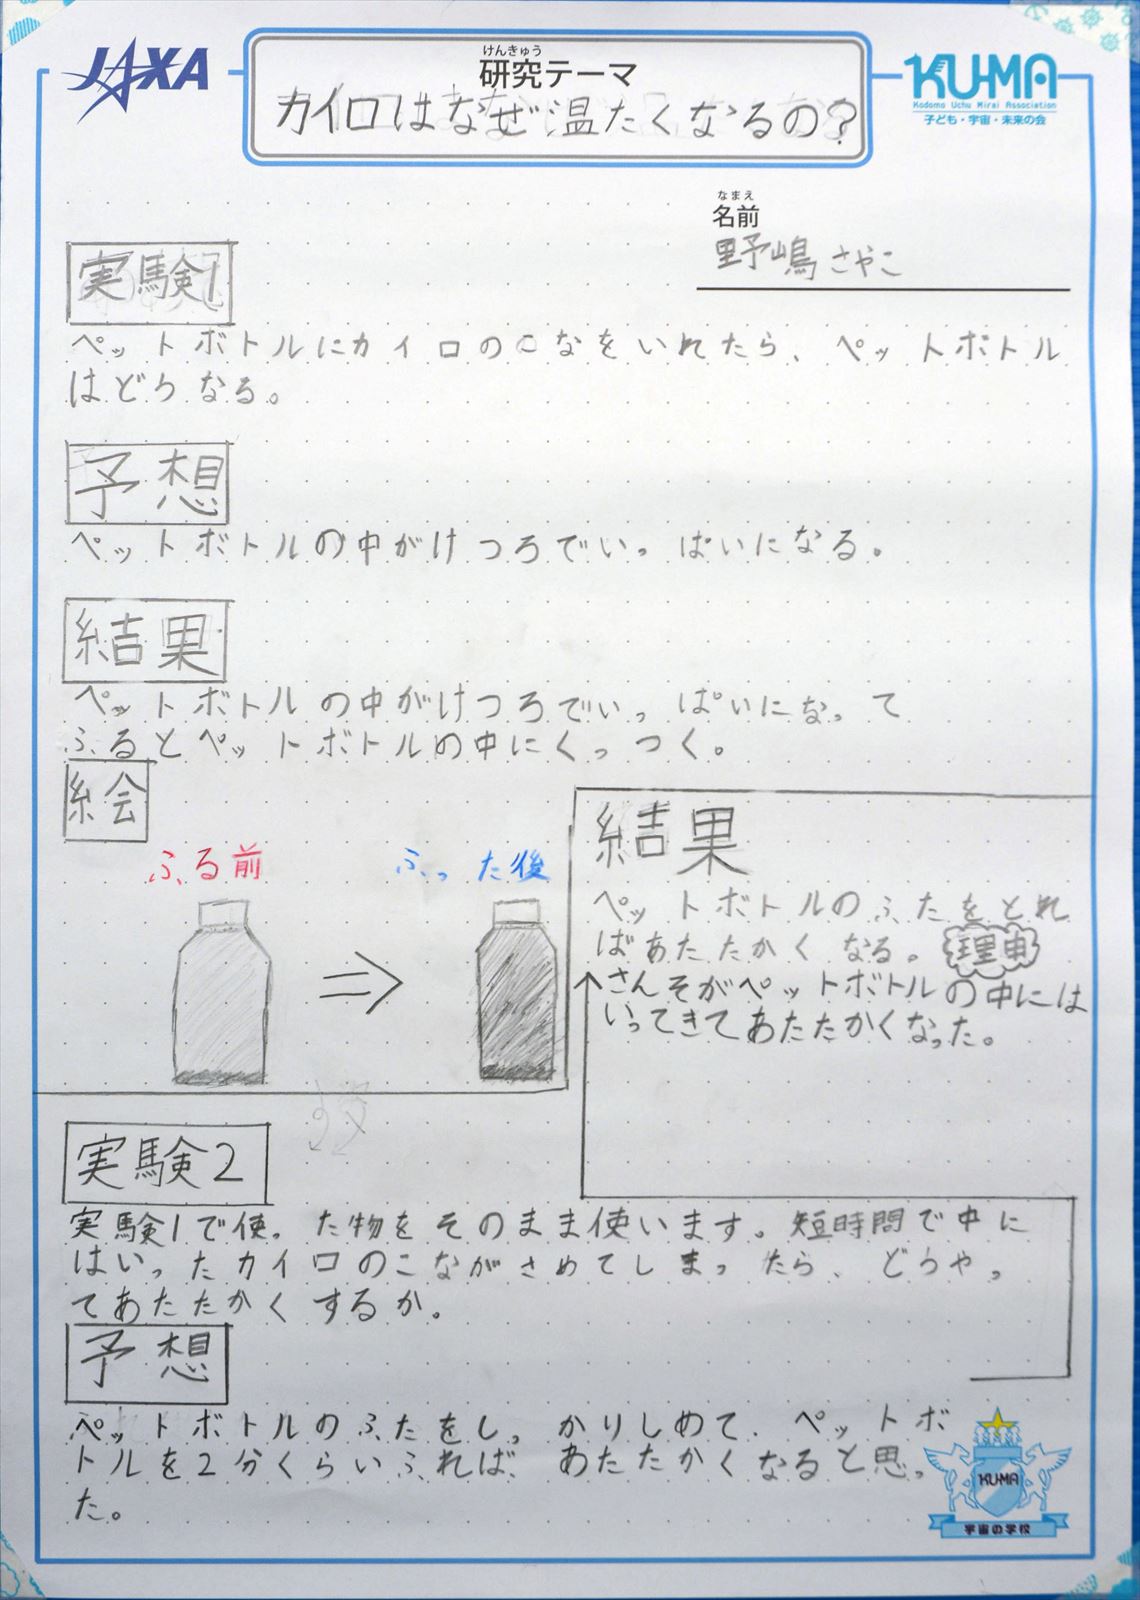 JAXA
けんきゅう
研究テーマ
カイロはなぜ温たくなるの?
KU-MA
Kodomo Uchu Mirai Association
子ども・宇宙・未来の会
なまえ
名前
野嶋さやこ
実験1
ペットボトルにカイロのこなをいれたら、ペットボトル
はどうなる。
予想
ペットボトルの中がけつろでいっぱいになる。
結果
ペットボトルの中がけつろでいっぱいになって
ふるとペットボトルの中にくっつく。
絵
ふる前
ふった後
実験2
実験1で使った物をそのまま使います。短時間で中に
はいったカイロのこながさめてしまったら、どうやっ
てあたたかくするか。
予想
ペットボトルのふたをしっかりしめて、ペットボ
トルを2分くらいふれば、あたたかくなると思っ
た。
結果
ペットボトルのふたをとれ
ばあたたかくなる。理由
さんそがペットボトルの中には
いってきてあたたかくなった。
KU-MA
宇宙の学校